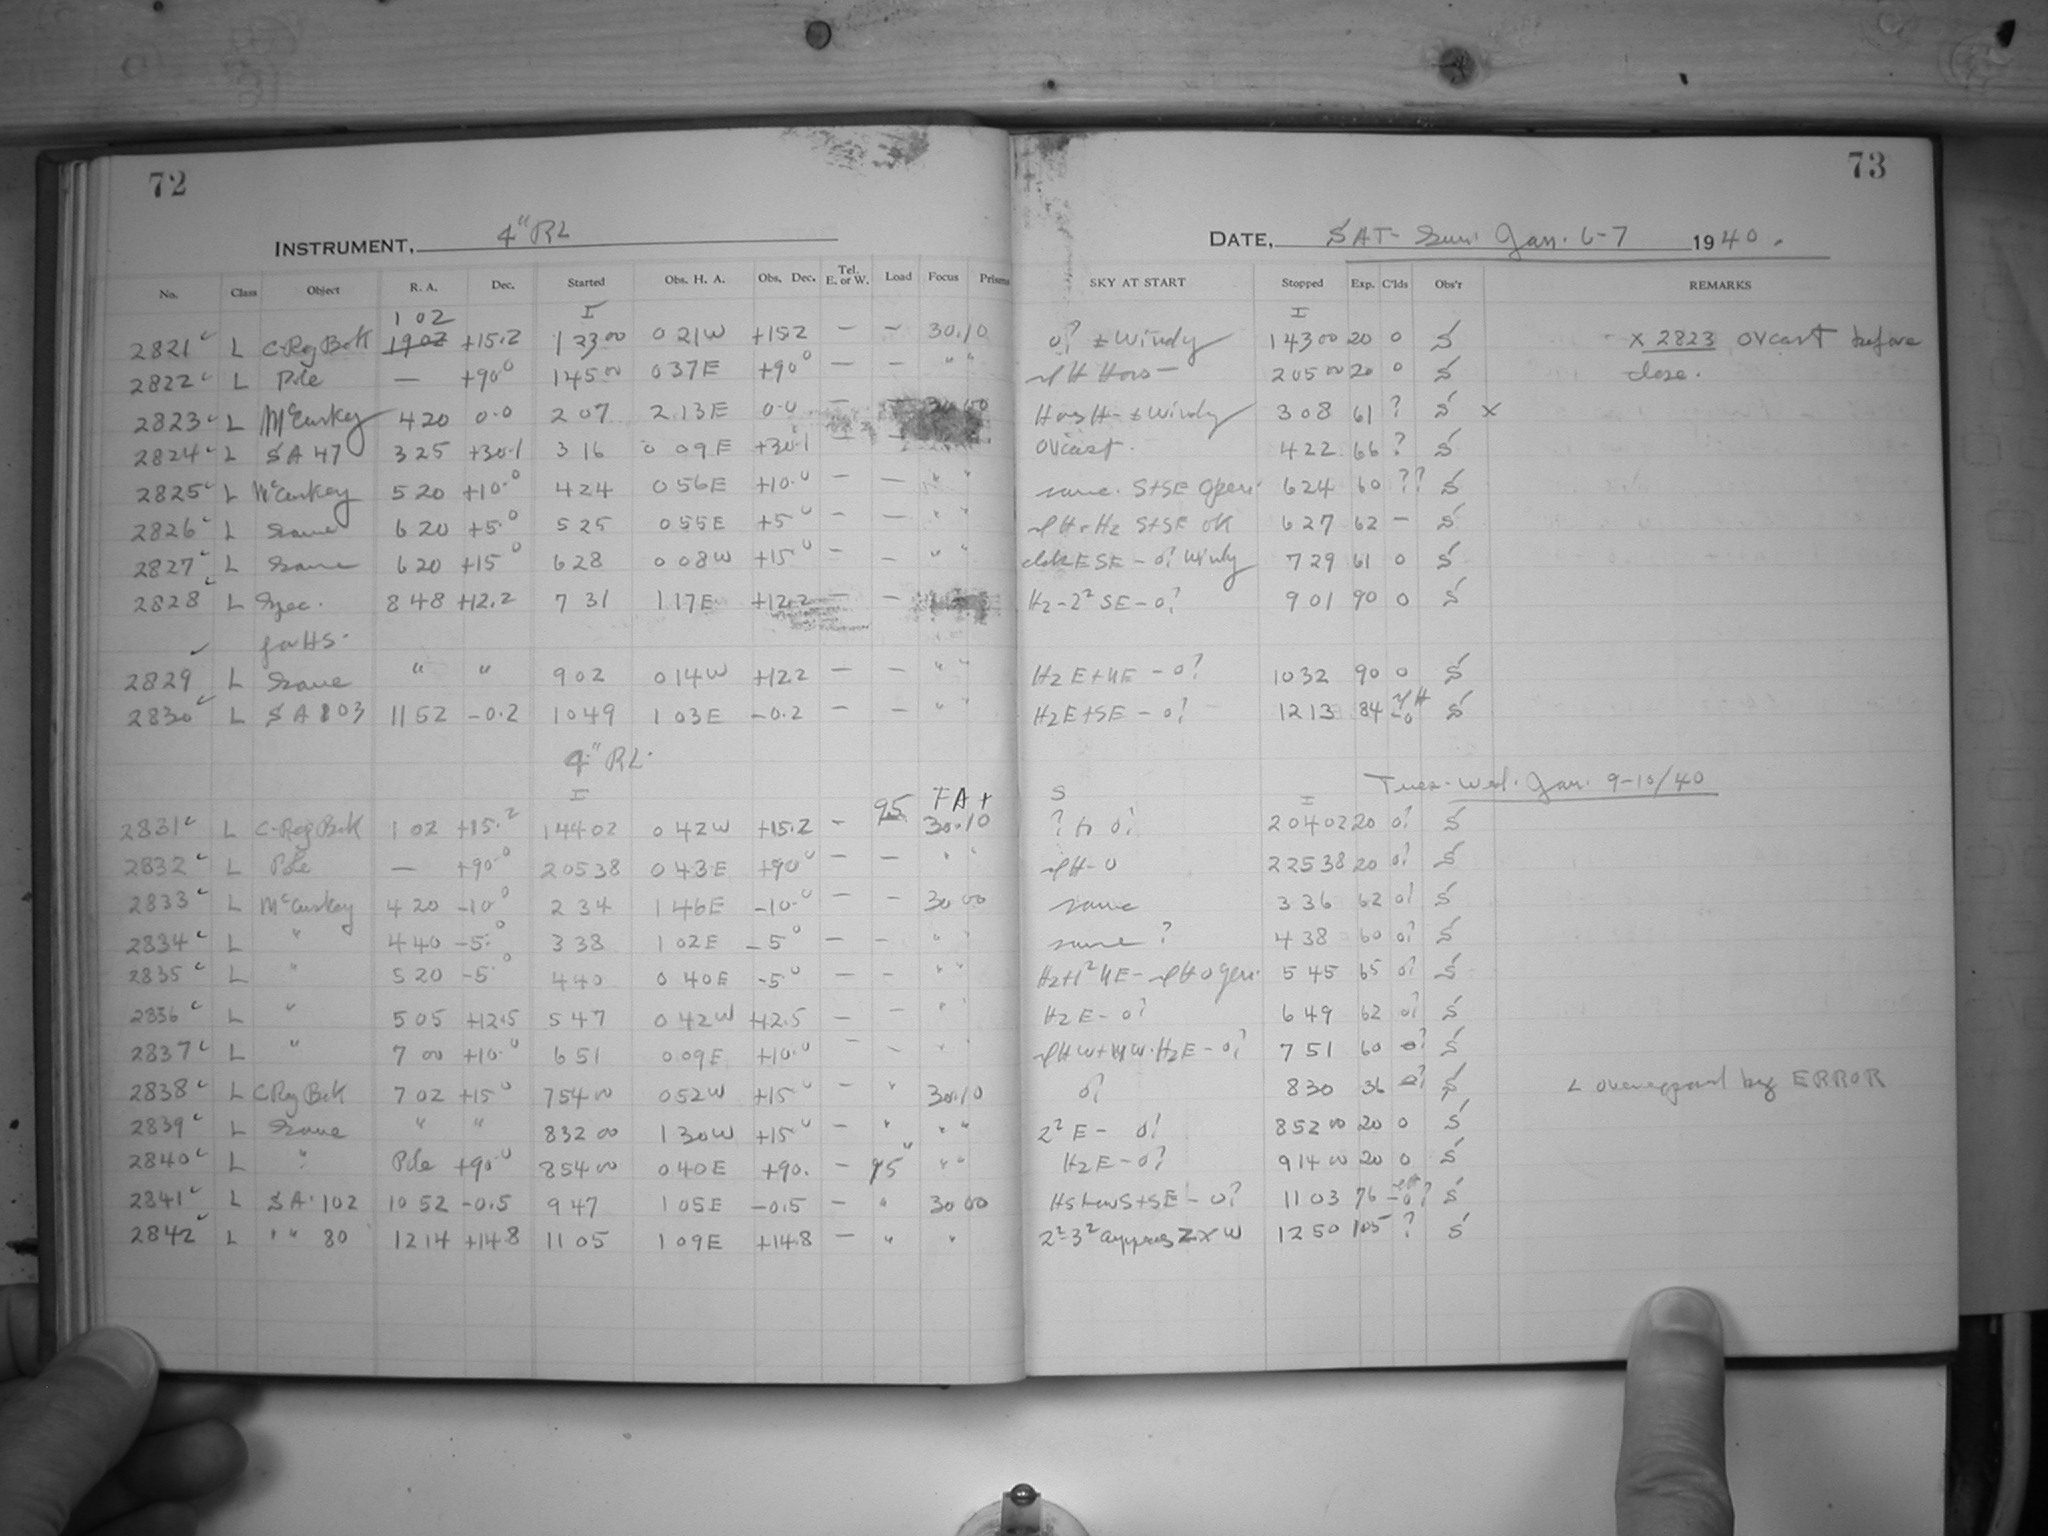 72
INSTRUMENT, 4" RL
No. Class Object R. A. Dec. Started Obs. H. A. Obs. Dec. Tel. E. or W. Load Focus Prisms
1 02 I
2821 L C-Reg Bok 1902 +15.2 1 23 00 0 21 W +15.2 — — 30.10
2822 L Pole — +90° 1 45 00 0 37 E +90° — — " "
2823 L McCuskey 4 20 0.0 2 07 2 13 E 0.0 — — 30.00
2824 L SA 47 3 25 +30.1 3 16 0 09 E +30.1 — —
2825 L McCuskey 5 20 +10.0 4 24 0 56 E +10.0 — — " "
2826 L Same 6 20 +5.0 5 25 0 55 E +5° — — " "
2827 L Same 6 20 +15° 6 28 0 08 W +15° — — " "
2828 L Spec. 8 48 +12.2 7 31 1 17 E +12.2 — —
for HS.
2829 L Same " " 9 02 0 14 W +12.2 — — " "
2830 L SA 103 11 52 -0.2 10 49 1 03 E -0.2 — — " "
4" RL.
I 95 FA+
2831 L C-Reg Bok 1 02 +15.2 1 44 02 0 42 W +15.2 — 30.10
2832 L Pole — +90.0 2 05 38 0 43 E +90° — — " "
2833 L McCuskey 4 20 -10° 2 34 1 46 E -10.0 — — 30 00
2834 L " 4 40 -5.0 3 38 1 02 E -5° — — " "
2835 L " 5 20 -5° 4 40 0 40 E -5.0 — — " "
2836 L " 5 05 +12.5 5 47 0 42 W +12.5 — — "
2837 L " 7 00 +10.0 6 51 0 09 E +10.0 — — " "
2838 L C Reg Bok 7 02 +15° 7 54 00 0 52 W +15° — " 30.10
2839 L Same " " 8 32 00 1 30 W +15° — " " "
2840 L " Pole +90.0 8 54 00 0 40 E +90. — 95 " "
2841 L SA. 102 10 52 -0.5 9 47 1 05 E -0.5 — " 30 00
2842 L " " 80 12 14 +14.8 11 05 1 09 E +14.8 — " "
73
DATE, SAT- Sun. Jan. 6-7 1940.
SKY AT START Stopped Exp. C'lds Obs'r REMARKS
I
0? ± Windy 1 43 00 20 0 S x 2823 ovcast before
2 05 00 20 0 S close.
± Windy 3 08 61 ? S x
ovcast. 4 22 66 ? S
same. S+SE 6 24 60 ?? S
S+SE OK 6 27 62 — S
ESE - 0? Windy 7 29 61 0 S
Hz - 2² SE - 0? 9 01 90 0 S
Hz E + NE - 0? 10 32 90 0 S
Hz E + SE - 0? 12 13 84 -0 S
Tues - Wed. Jan. 9-10/40
S I
? to 0? 2 04 02 20 0? S
2 25 38 20 0? S
same 3 36 62 0? S
same ? 4 38 60 0? S
5 45 65 0? S
Hz E - 0? 6 49 62 0? S
Hz E - 0? 7 51 60 0? S
0? 8 30 36 S ERROR
2² E - 0? 8 52 00 20 0 S
Hz E - 0? 9 14 00 20 0 S
S+SE - 0? 11 03 76 S
2²-3² approx Z x W 12 50 105 ? S